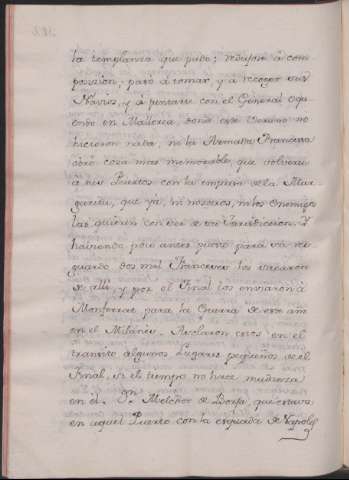 la templanza que pudo; reduxose à com
posizion; paró à tomar, y à recoger sus
Navios, y à juntarse con el General Oque
endo en Mallorca, donde este Verano no
hicieron nada, ni la Armada Francesa
obró cosa mas memorable, que volverse
à sus Puertos con la empresa de la Mar
garita, que ya, ni nosotros, ni los Enemigos
las quieren con ser de un Jurisdiccion. Y
haviendo poco antes puesto para va res
guardo dos mil Franceses los sacaron
de alli, y por el Final los enviaron à
Monferrat para la Guerra de este año
en el Milanés. Asolaron estos en el
transito algunos Lugares pequeños de el
Final, si el tiempo no hace mudanza
en el. Dn. Melchor de Borja, que estava
en aquel Puerto con la esquadra de Napoles